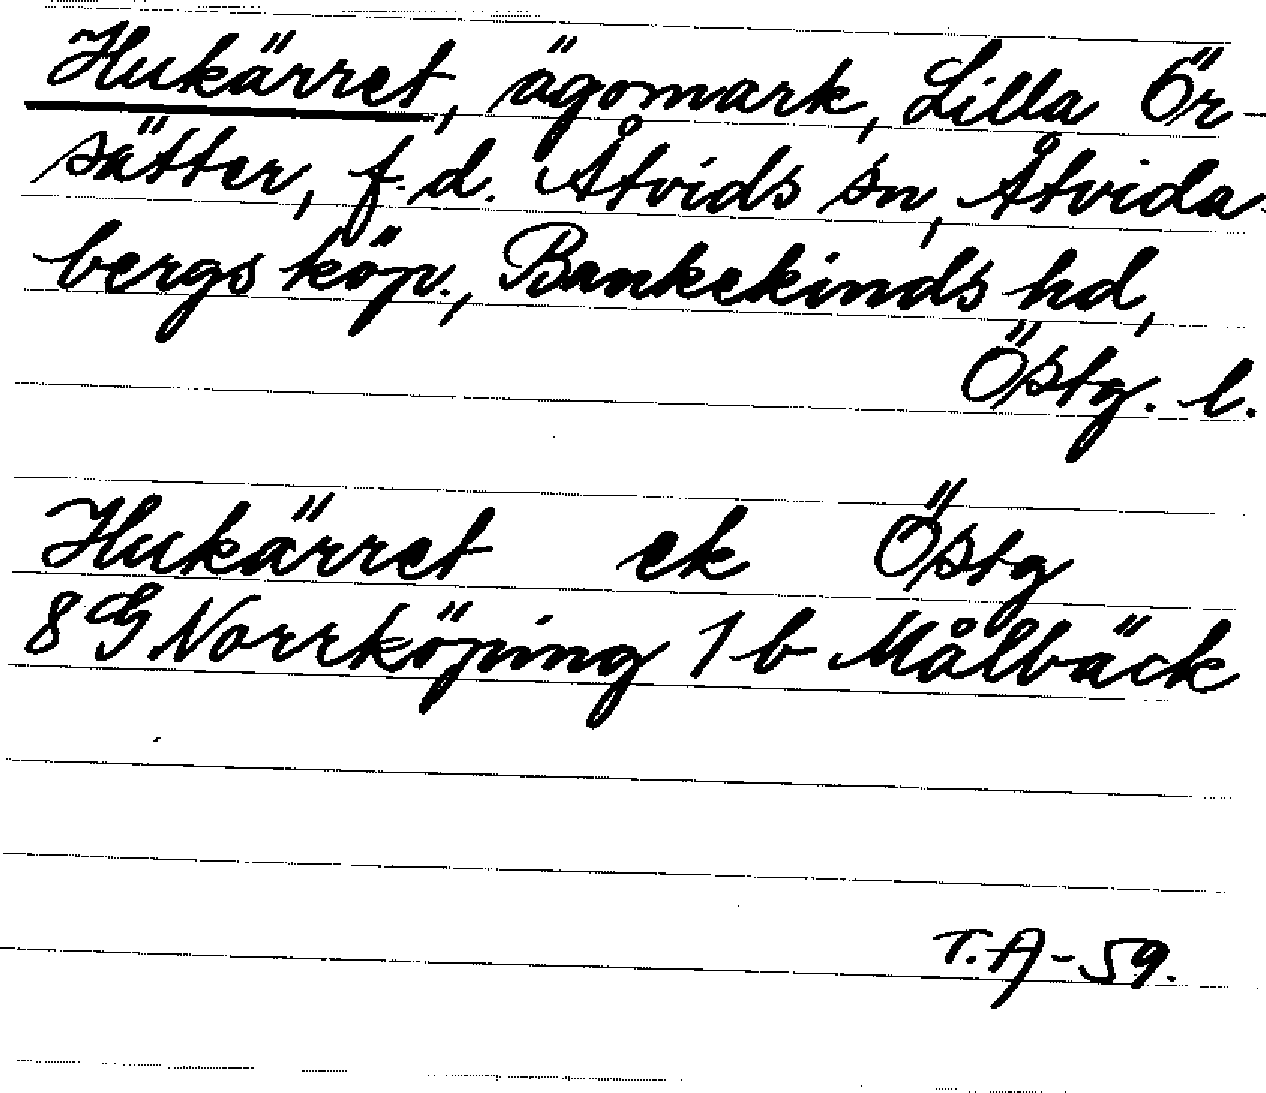 Hukärret, ägomark, Lilla Ör-
sätter, f.d. Åtvids sn, Åtvida-
bergs köp., Bankekinds hd,
Östg. l.
Hukärret ek Östg
8G Norrköping 1b Målbäck
T.A-59.